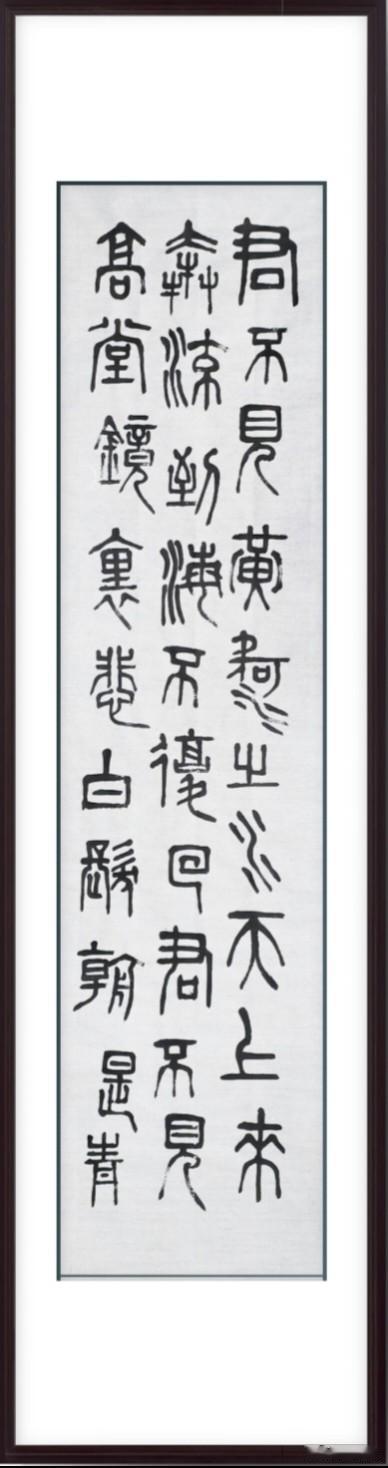 君不見黃河之水天上來
奔流到海不復回君不見
高堂鏡裏悲白髮朝是青